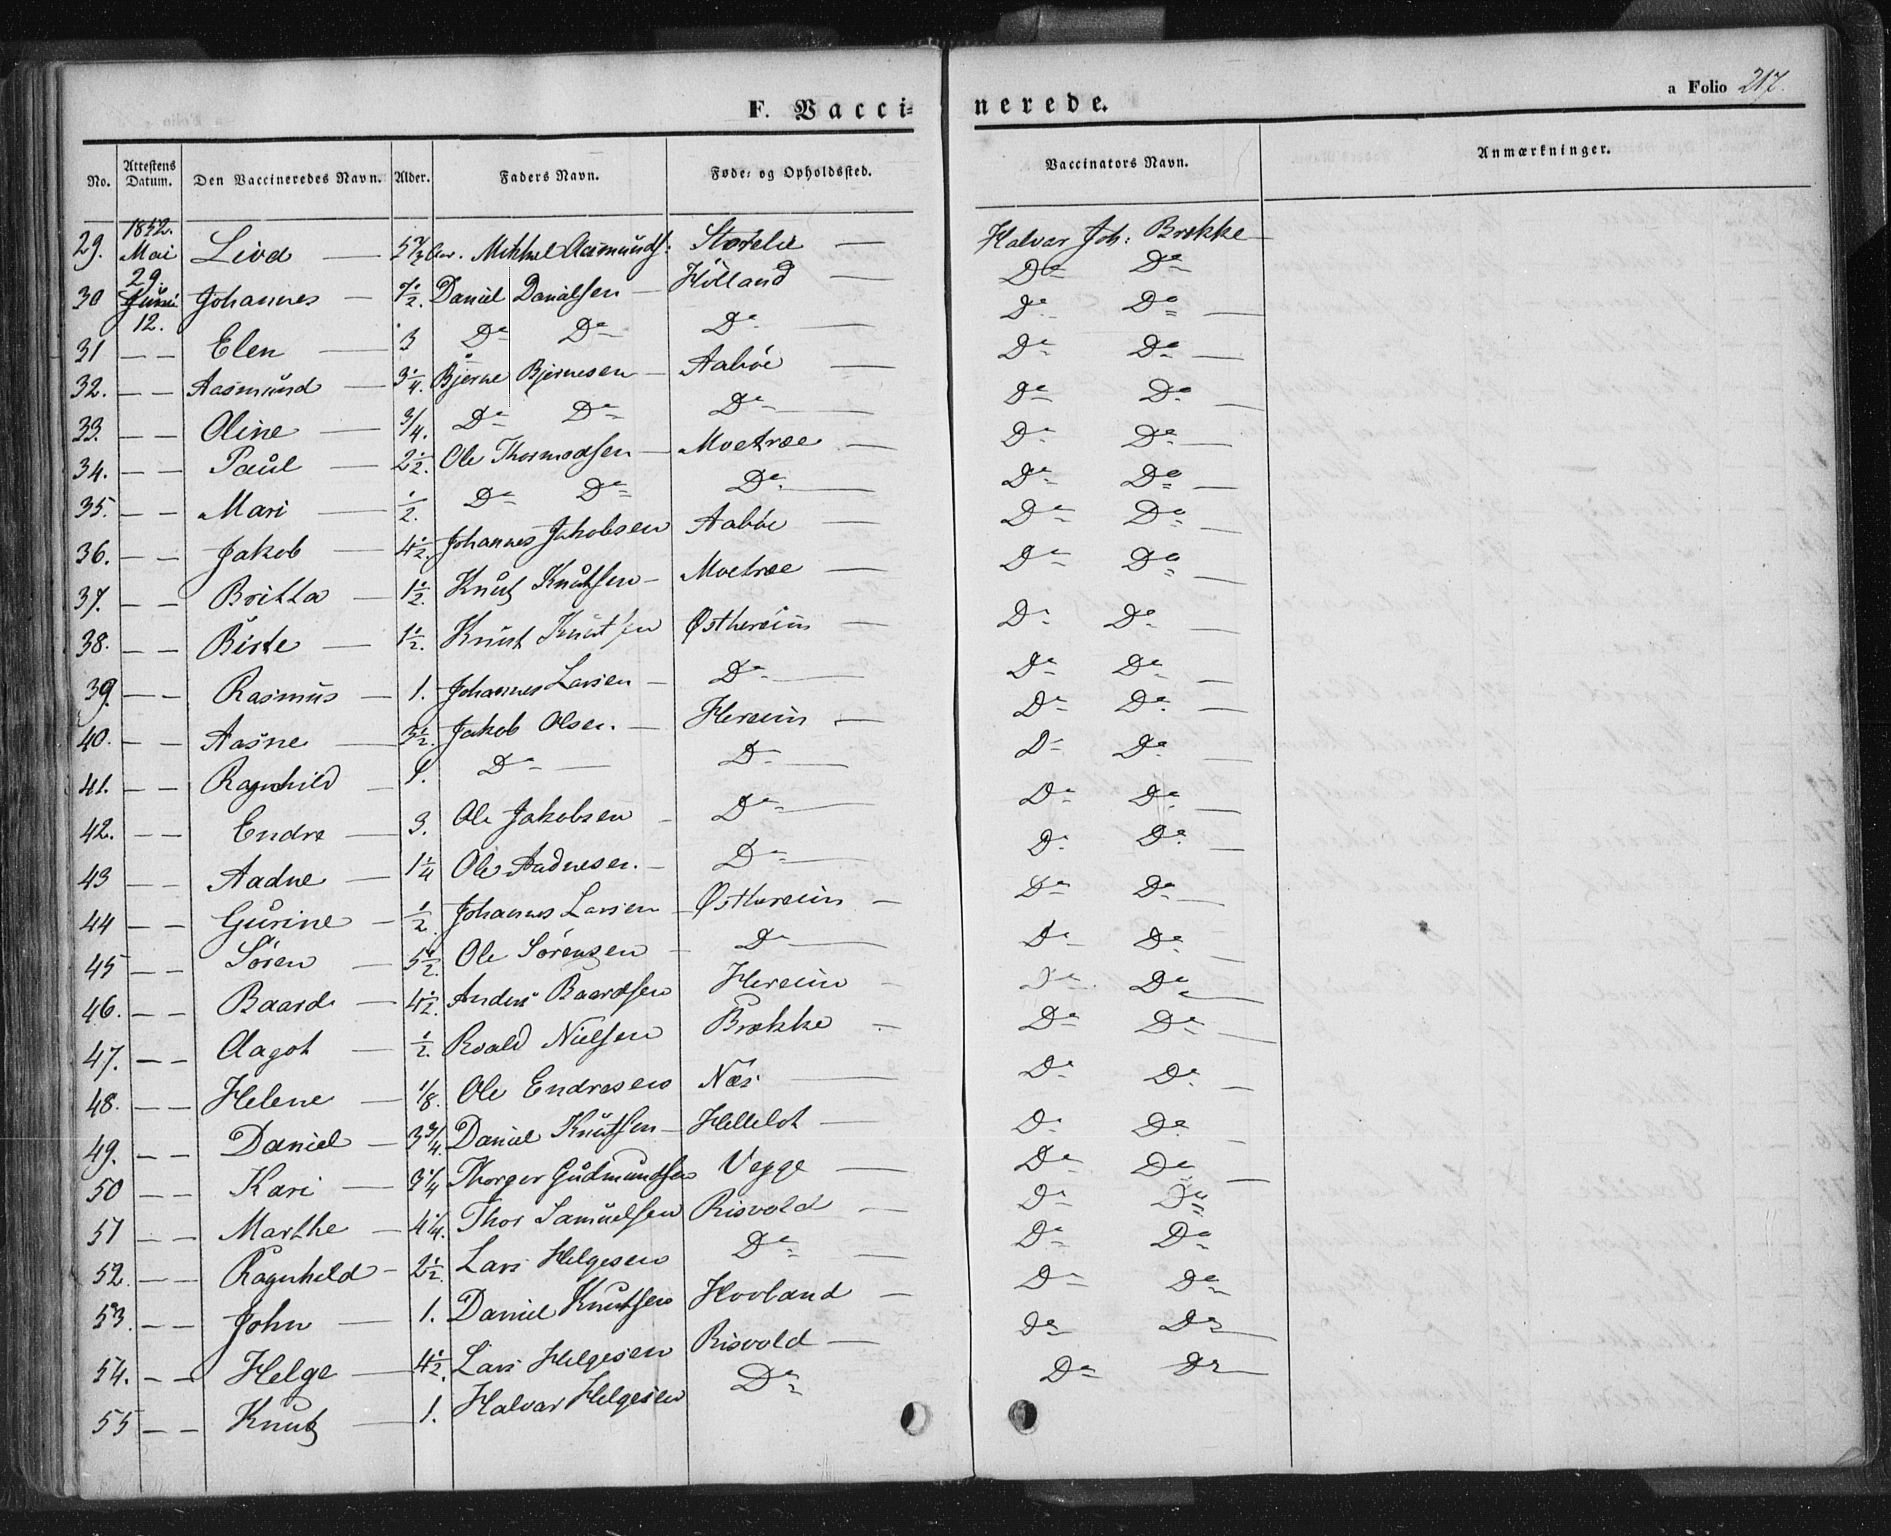 a Folio 217.
F. Vaccinerede.
No. Attestens Datum. Den Vaccineredes Navn. Alder. Faders Navn. Føde- og Opholdssted. Vaccinators Navn. Anmærkninger.
1852.
29. Mai 29. Livd — Aar. Mikkel Aasmunds: Størelie — Halvar Joh: Brekke
30 Juni 12. Johannes — 7½. Daniel Danielsen — Hölland — Do Do
31 — — Elen — 3 Do Do Do — Do Do —
32. — — Aasmund — 3¼. Bjerne Bjernesen — Aaböe — Do Do —
33. — — Oline — 3/4. Do Do Do — Do Do —
34. — — Paul — 2½. Ole Thormodsen — Moetræe — Do Do —
35. — — Mari — ½. Do Do Do — Do Do —
36. — — Jakob — 4½. Johannes Jakobsen Aaböe — Do Do —
37. — — Britta — 1½. Knut Knutsen — Moetræe — Do Do —
38. — — Birte — 1½. Knut Knutsen Østhereim — Do Do —
39. — — Rasmus — 1. Johannes Larsen — Do — Do Do —
40. — — Aasne — 3½. Jakob Olsen. — Hereim — Do Do —
41. — — Ragnhild — 1. Do — Do — Do Do —
42. — — Endre — 3. Ole Jakobsen — Do — Do Do —
43 — — Aadne — 1¼ Ole Aadnesen. — Do — Do Do —
44 — — Gurine — ½. Johannes Larsen — Østhereim — Do Do —
45 — — Sören — 5½. Ole Sörensen — Do — Do Do —
46. — — Baard — 4½. Anders Baardsen Hereim — Do Do —
47. — — Aagot — ½. Roald Nielsen Brekke — Do Do —
48. — — Helene — 1/8. Ole Endresen Næs — Do Do —
49. — — Daniel — 3 3/4. Daniel Knutsen — Hellelot — Do Do —
50 — — Kari — 3¼ Thorger Gudmundsen Vegge — Do Do —
51 — — Marthe — 4¼. Thor Samuelsen Risvold — Do Do
52. — — Ragnhild — 2½. Lars Helgesen Do — Do Do
53. — — John — 1. Daniel Knutsen Hovland — Do Do
54. — — Helge — 4½. Lars Helgesen Risvold — Do Do
55 — — Knut — 1. Halvar Helgesen Do Do Do